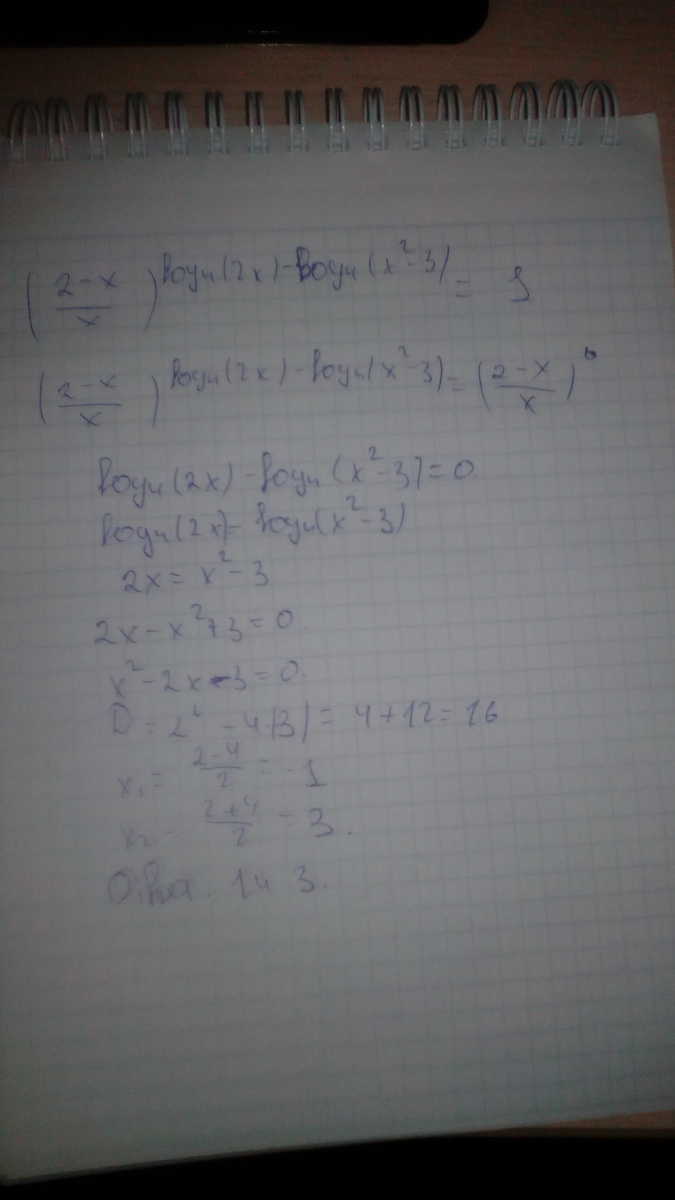 ((2-x)/x)^(log₄(2x)-log₄(x²-3)) = 1
((2-x)/x)^(log₄(2x)-log₄(x²-3)) = ((2-x)/x)^0
log₄(2x)-log₄(x²-3)=0.
log₄(2x)=log₄(x²-3)
2x = x²-3
2x-x²+3=0.
x²-2x-3=0.
D=2²-4(3)=4+12=16
x₁= (2-4)/2 = -1
x₂= (2+4)/2 = 3.
Ответ: 1 и 3.